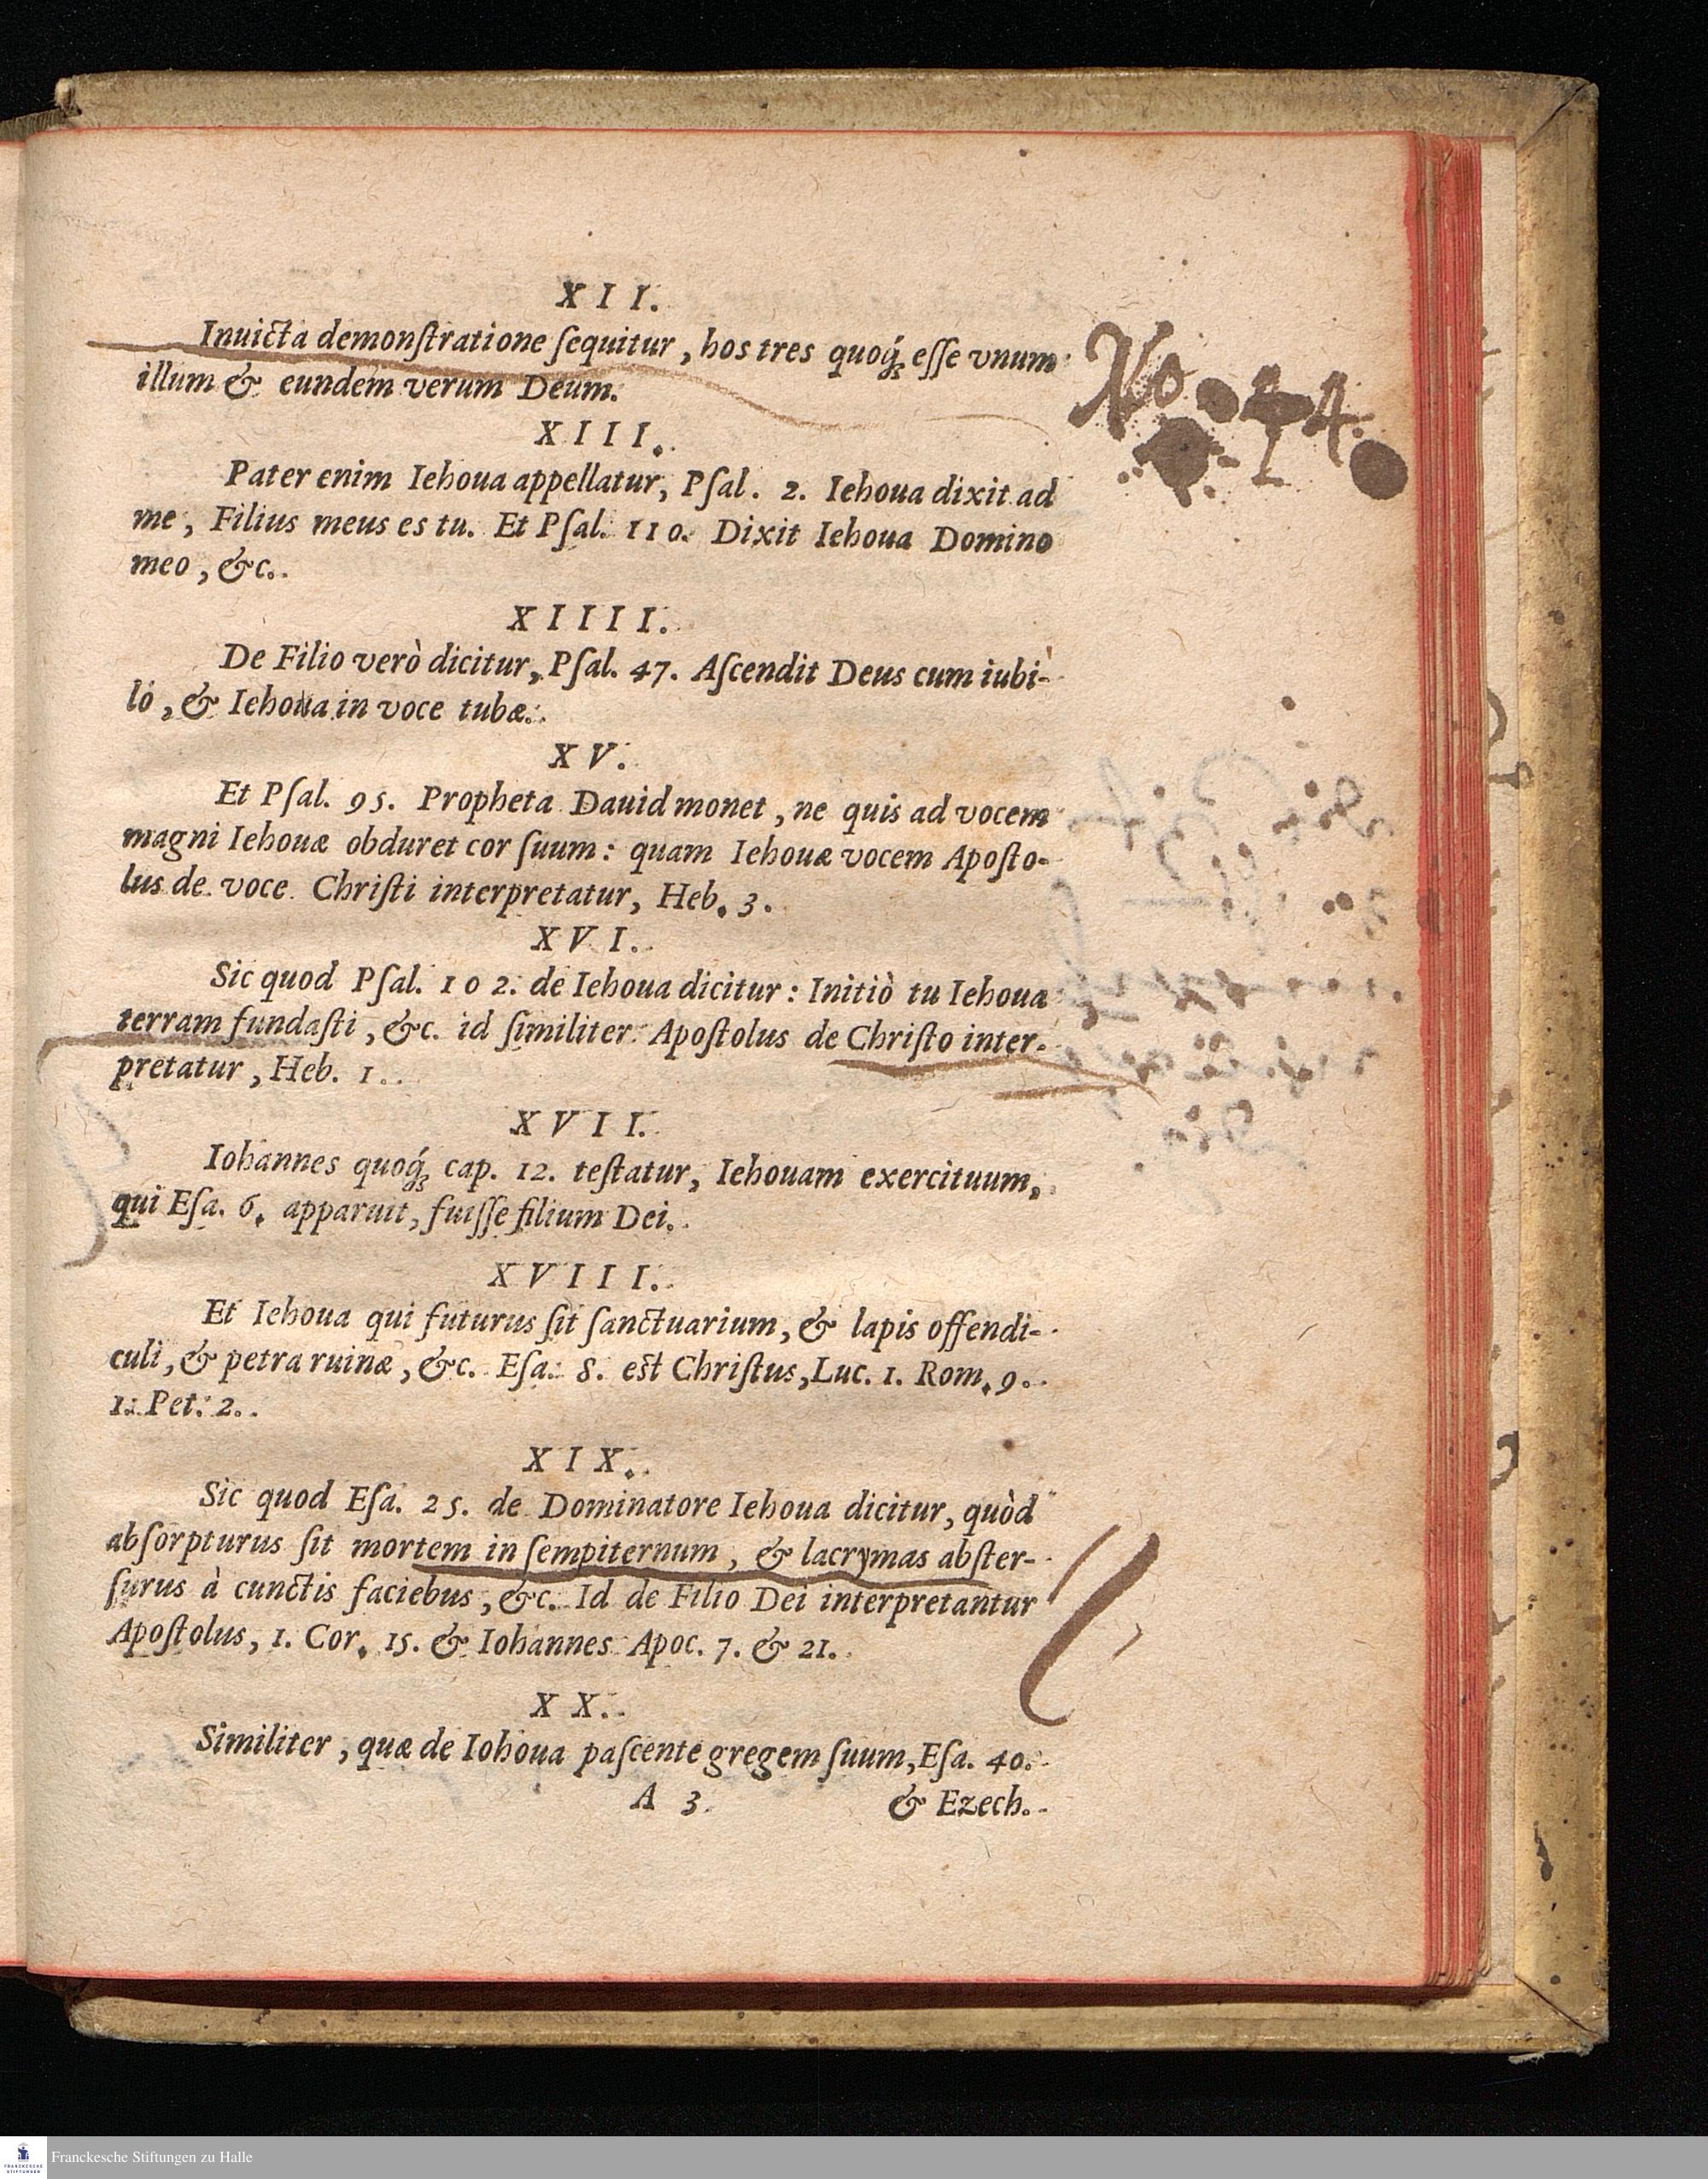 XII.
Inuicta demonſtratione ſequitur, hos tres quoq́; eſſe vnum
illum & eundem verum Deum.
XIII.
Pater enim Iehoua appellatur, Pſal. 2. Iehoua dixit ad
me, Filius meus es tu. Et Pſal. 110. Dixit Iehoua Domino
meo, &c.
XIIII.
De Filio verò dicitur, Pſal. 47. Aſcendit Deus cum iubi-
lo, & Iehoua in voce tubæ.
XV.
Et Pſal. 95. Propheta Dauid monet, ne quis ad vocem
magni Iehouæ obduret cor ſuum: quam Iehouæ vocem Apoſto-
lus de voce Chriſti interpretatur, Heb. 3.
XVI.
Sic quod Pſal. 102. de Iehoua dicitur: Initiò tu Iehoua
terram fundaſti, &c. id ſimiliter Apoſtolus de Chriſto inter-
pretatur, Heb. 1.
XVII.
Iohannes quoq́; cap. 12. teſtatur, Iehouam exercituum,
qui Eſa. 6. apparuit, fuiſſe filium Dei.
XVIII.
Et Iehoua qui futurus ſit ſanctuarium, & lapis offendi-
culi, & petra ruinæ, &c. Eſa. 8. eſt Chriſtus, Luc. 1. Rom. 9.
1. Pet. 2.
XIX.
Sic quod Eſa. 25. de Dominatore Iehoua dicitur, quòd
abſorpturus ſit mortem in ſempiternum, & lacrymas abſter-
ſurus à cunctis faciebus, &c. Id de Filio Dei interpretantur
Apoſtolus, 1. Cor. 15. & Iohannes Apoc. 7. & 21.
XX.
Similiter, quæ de Iohoua paſcente gregem ſuum, Eſa. 40.
A 3 & Ezech.
No
Franckesche Stiftungen zu Halle